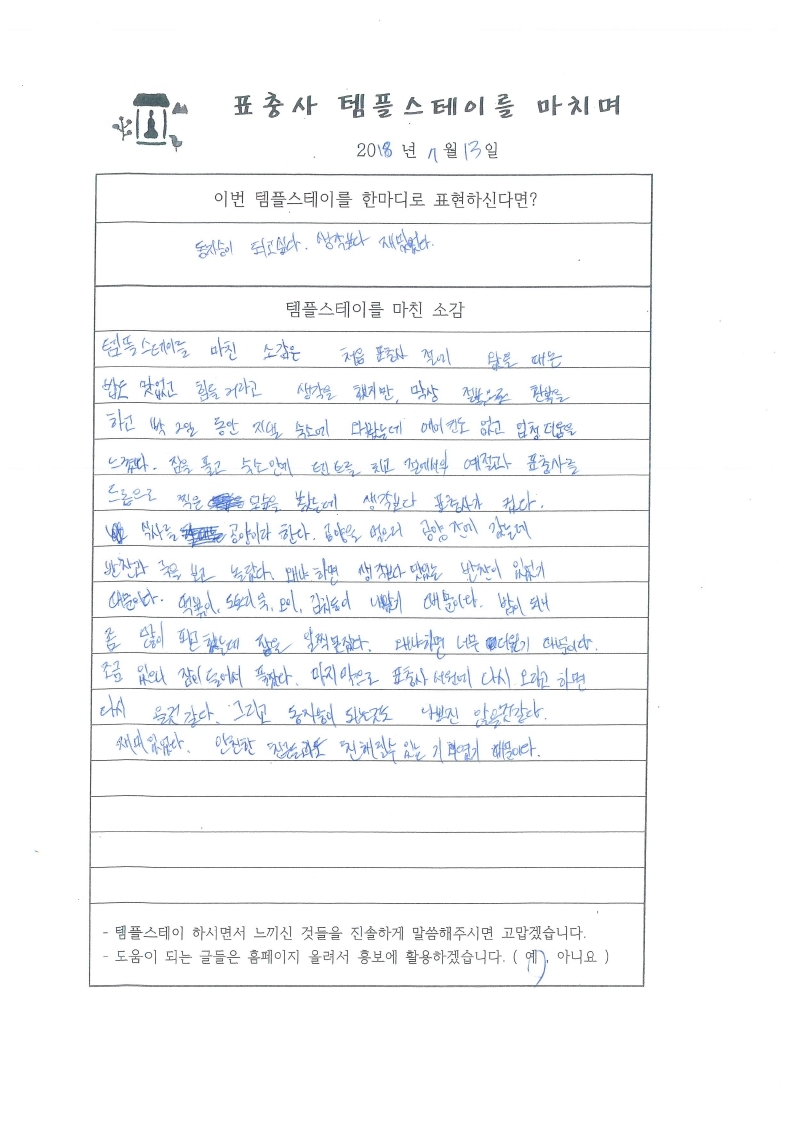 표충사 템플스테이를 마치며
2018년 7월 13일
이번 템플스테이를 한마디로 표현하신다면?
동자승이 되고싶다. 생각보다 재밌었다.
템플스테이를 마친 소감
템플스테이를 마친 소감은 처음 표충사 절에 왔을 때는
밥도 맛없고 힘들거라고 생각을 했지만, 막상 절복으로 환복을
하고 1박 2일 동안 지낼 숙소에 와봤는데 에어컨도 없고 엄청 더움을
느꼈다. 짐을 풀고 숙소안에 텐트를 치고 절에서의 예절과 표충사를
드론으로 찍은 모습을 봤는데 생각보다 표충사가 컸다.
식사를 공양이라 한다. 공양을 먹으러 공양간에 갔는데
반찬과 국을 보고 놀랐다. 왜냐하면 생각보다 맛있는 반찬이 있었기
때문이다. 떡볶이, 오이, 김치등이 나왔기 때문이다. 밤이 되니
좀 많이 피곤했는데 잠을 일찍 못잤다. 왜냐하면 너무 더웠기 때문이다.
조금 있으니 잠이 들어서 푹잤다. 마지막으로 표충사 서원에 다시 오라고 하면
다시 올것 같다. 그리고 동자승이 되는것도 나쁘진 않을것같다.
재미있었다. 안친한 친구들과도 친해질수 있는 기회였기 때문이다.
- 템플스테이 하시면서 느끼신 것들을 진솔하게 말씀해주시면 고맙겠습니다.
- 도움이 되는 글들은 홈페이지 올려서 홍보에 활용하겠습니다. ( 예 , 아니요 )